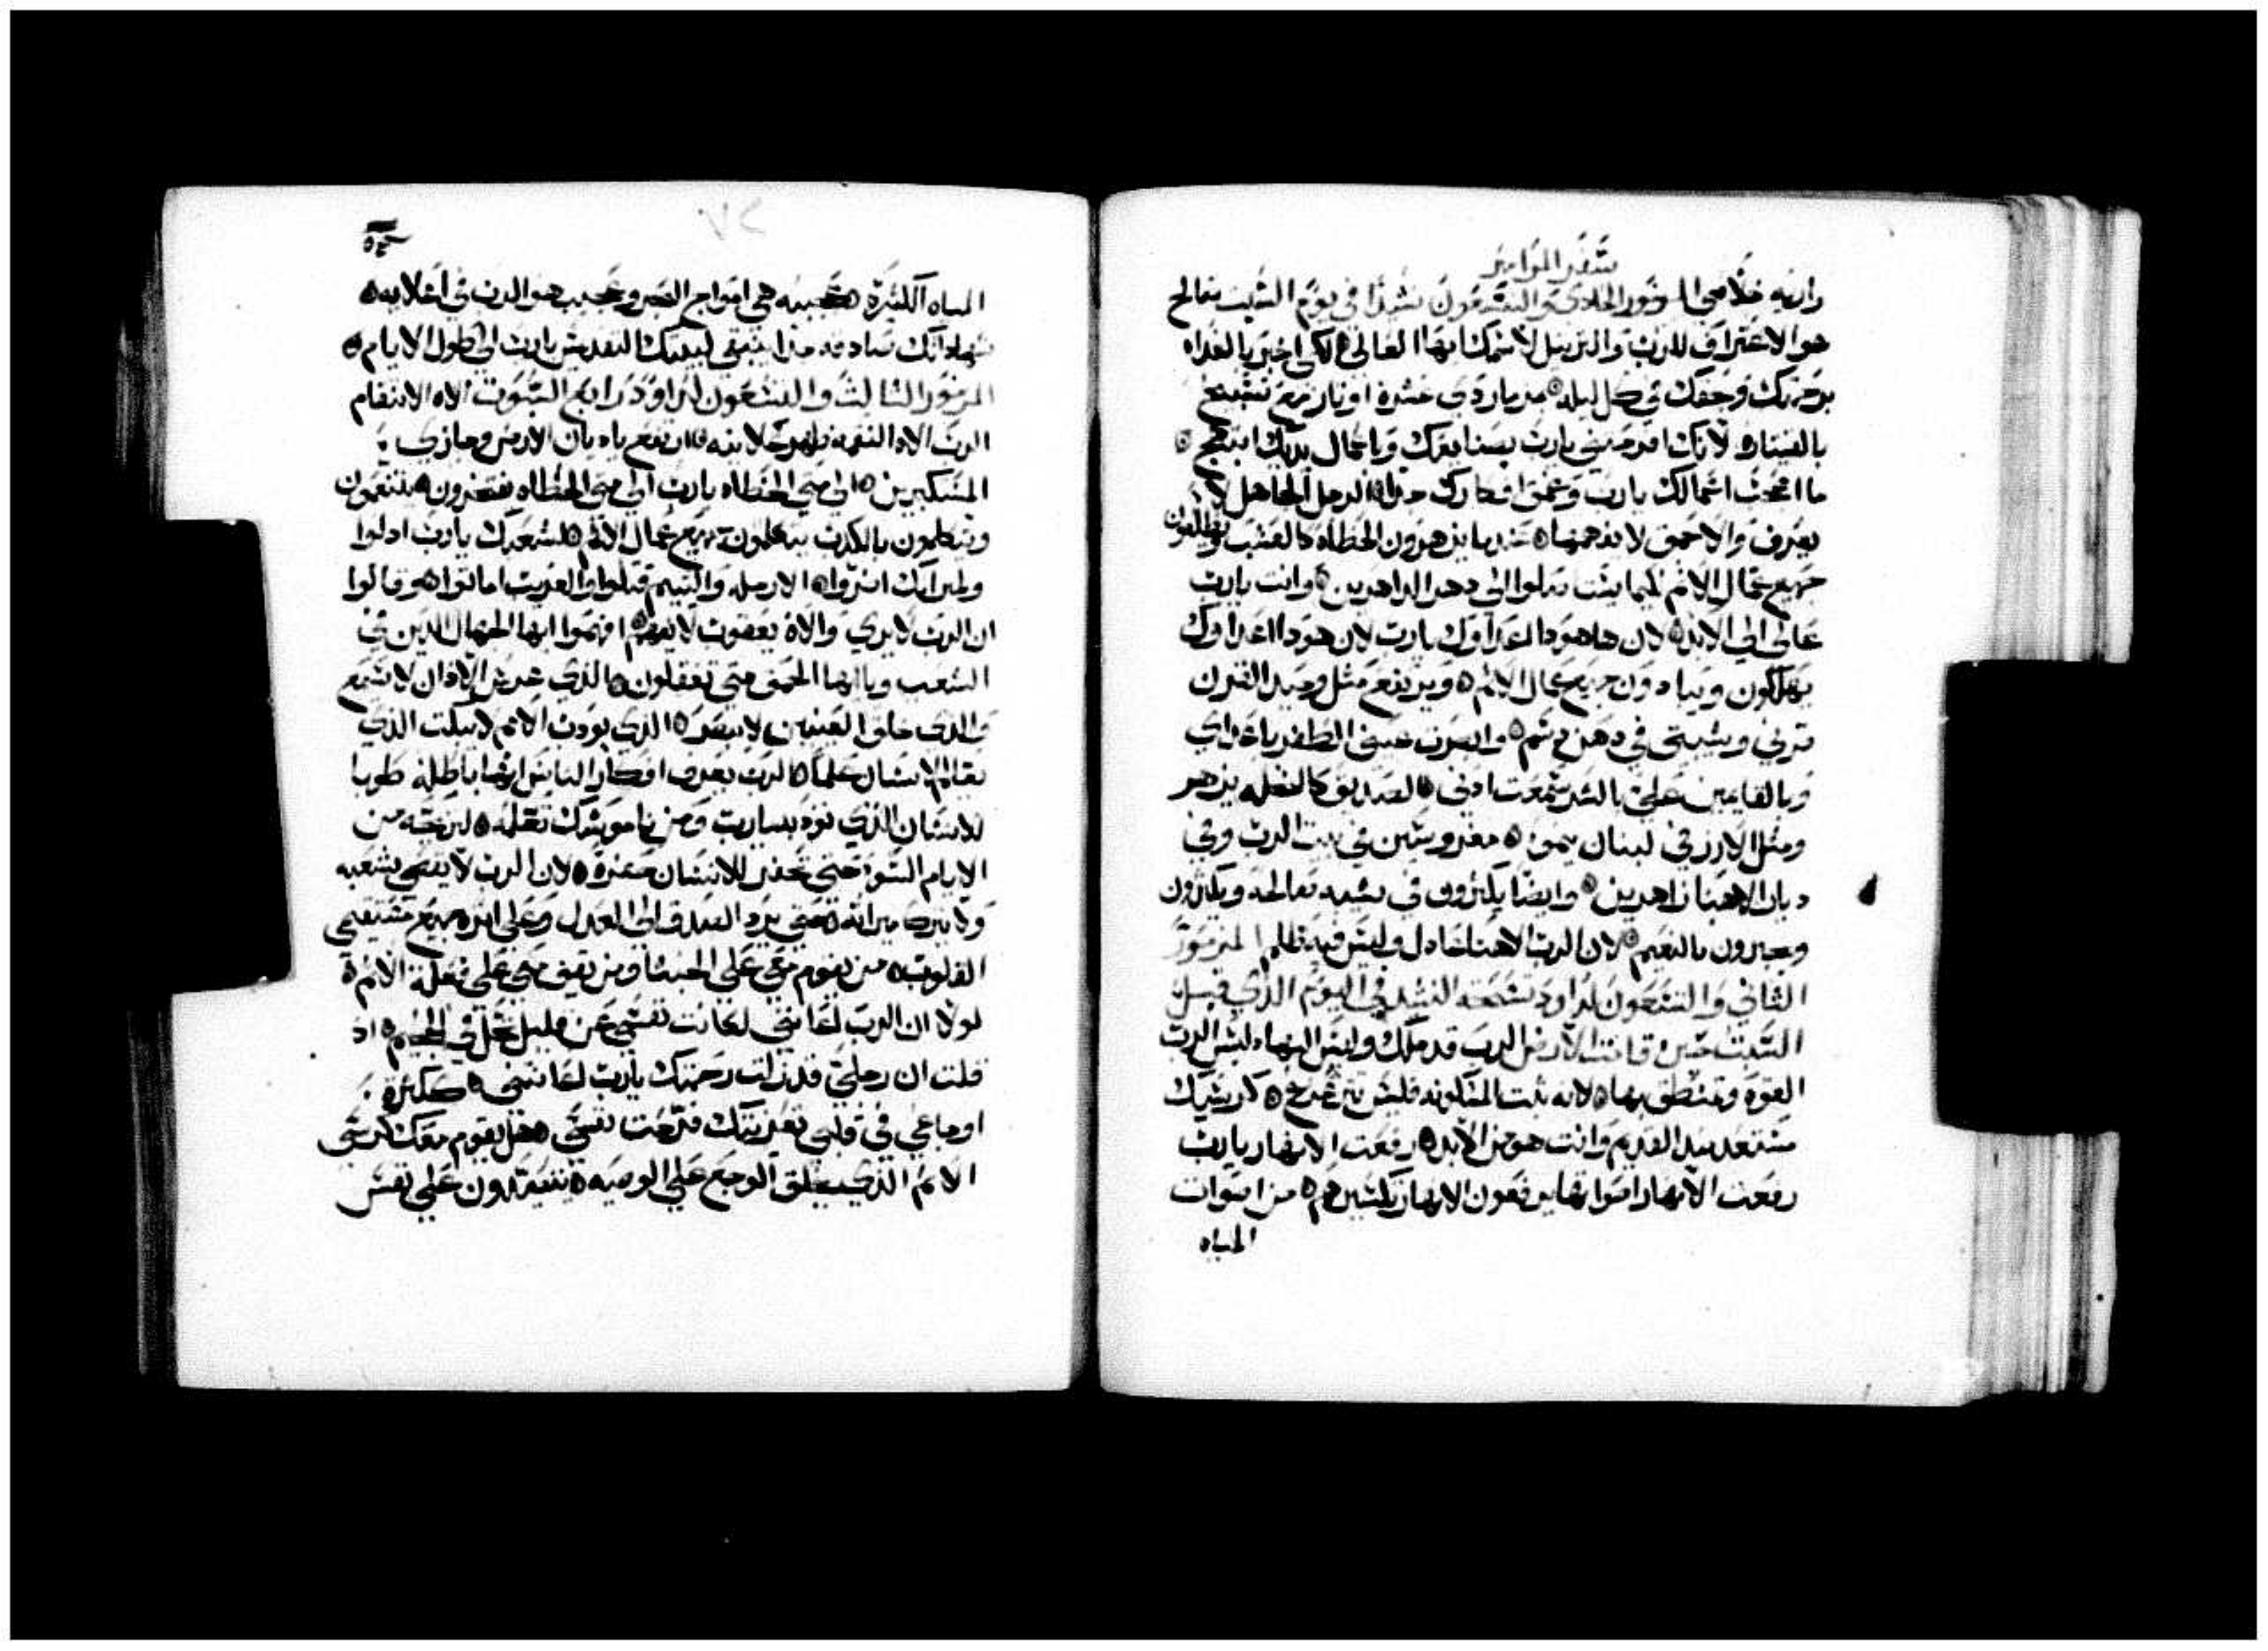 سفر المزامير
واريه خلاصي المزمور الحادي والتسعون نشيدا في يوم السبت صالح
هو الاعتراف للرب والترتيل لاسمك ايها العالي لكي اخبر بالغداه
برحمتك وحقك في كل ليله بمزمار ذي عشرة اوتار مع تسبيح
بالقيتاره لانك افرحتني يارب بصنايعك وباعمال يديك ابتهج
ما اعجب اعمالك يارب وعمق افكارك جدا الرجل الجاهل لا
يعرف والاحمق لا يفهمها عندما يزهرون الخطاه كالعشب ويطلعون
جميع عمال الاثم لكيما يستاصلوا الي دهر الداهرين وانت يارب
عالي الي الابد لان هاهوذا اعداوك يارب لان هوذا اعداوك
يهلكون ويبادون جميع عمال الاثم ويرتفع مثل وحيد القرن
قرني وشيبتي في دهن دسم وابصرت عيني الظفر باعداي
وبالقايمين علي بالشر سمعت اذني الصديق كالنخله يزهر
ومثل الارز في لبنان ينمو مغروسين في بيت الرب وفي
ديار الاهنا زاهرين وايضا يكثرون في شيبه صالحه ويكونون
ويخبرون بالنعيم لان الرب الاهنا عادل وليس فيه ظلم المزمور
الثاني والتسعون لداود تسبحة النشيد في اليوم الذي قبل
السبت حين قامت الارض الرب قد ملك ولبس البهاء لبس الرب
القوة وتمنطق بها لانه ثبت المسكونه فليس تتزعزع كرسيك
مستعد منذ القديم وانت هو من الابد رفعت الانهار يارب
رفعت الانهار اصواتها يرفعون الانهار تكسيرهم من اصوات
المياه
المياه الكثيرة عجيبه هي امواج البحر وعجيب هو الرب في اعلايه
شهاداتك صادقه جدا ينبغي لبيتك التقديس يارب الي طول الايام
المزمور الثالث والتسعون لداود رابع السبوت الاه الانتقام
الرب الاه النقمه ظهر علانيه ارتفع يا ديان الارض وجازي
المستكبرين الي متي الخطاه يارب الي متي الخطاه يفتخرون ينتقمون
ويتكلمون بالكذب يتكلمون جميع عمال الاثم لشعبك يارب اذلوا
ولميراثك اضروا الارمله واليتيم قتلوا والغريب اماتوا هو قالوا
ان الرب لا يري والاه يعقوب لا يفهم افهموا ايها الجهال الذين في
الشعب ويا ايها الحمق متي تعقلون الذي غرس الاذان لا يسمع
والذي خلق العينين لا يبصر الذي يودب الامم لا يبكت الذي
يعلم الانسان علما الرب يعرف افكار الناس انها باطله طوبا
للانسان الذي تودبه يارب ومن ناموسك تعلمه لتريحه من
الايام السو حتي تحفر للانسان حفرة لان الرب لا يقصي شعبه
ولا يترك ميراثه حتي يرد العدل الي العدل وعلي اثره جميع مستقيمي
القلوب من يقوم معي علي الخبثا ومن يقف معي علي فعلة الاثم
لولا ان الرب اعانني لكانت نفسي عن قليل تحل في الجحيم اذ
قلت ان رجلي قد زلت رحمتك يارب اعانتني ككثرة
اوجاعي في قلبي تعزيتك فرحت نفسي هل يقوم معك كرسي
الاثم الذي يخلق الوجع علي الوصيه يتصيدون علي نفس